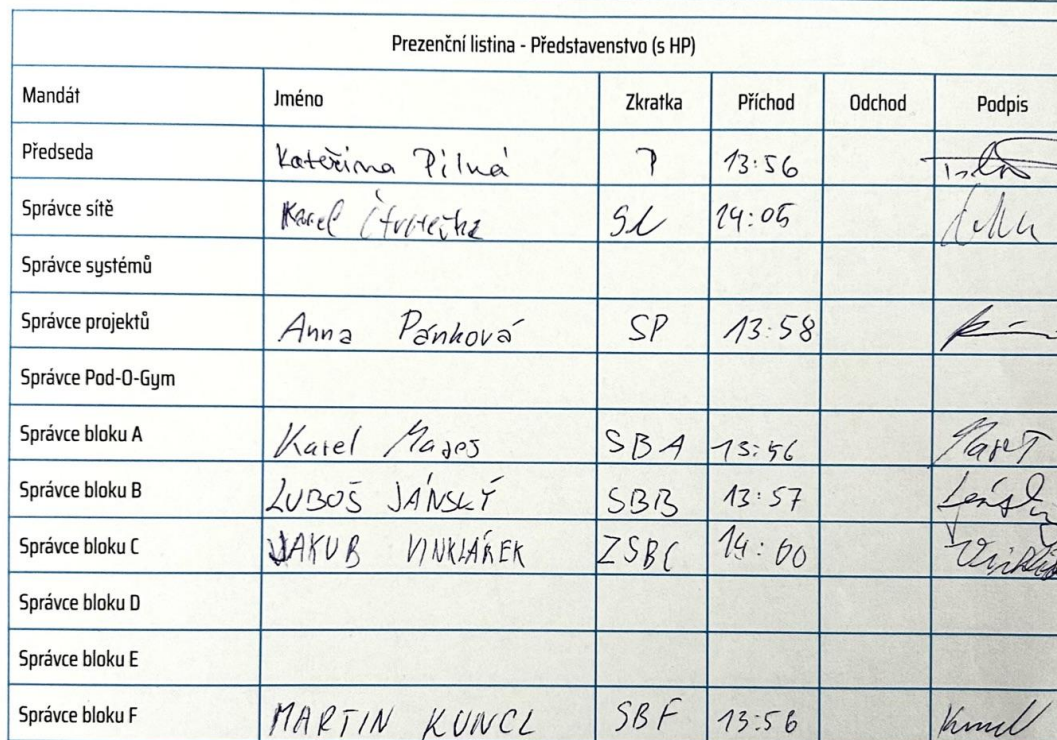 Prezenční listina - Představenstvo (s HP)
Mandát Jméno Zkratka Příchod Odchod Podpis
Předseda Kateřina Pilná P 13:56
Správce sítě Karel SL 14:05
Správce systémů
Správce projektů Anna Pánková SP 13:58
Správce Pod-O-Gym
Správce bloku A Karel Mareš SBA 13:56
Správce bloku B LUBOŠ JÁNSKÝ SBB 13:57
Správce bloku C JAKUB VINKLÁREK ZSBC 14:00
Správce bloku D
Správce bloku E
Správce bloku F MARTIN KUNCL SBF 13:56